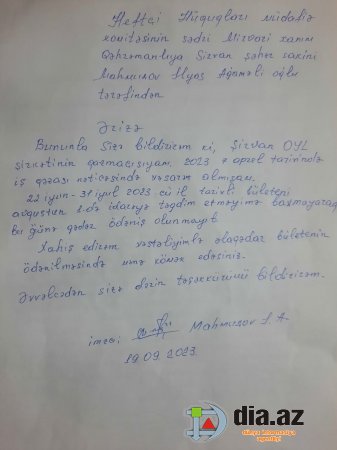 Neftçi Hüquqları müdafiə
komitəsinin sədri Mirvari xanım
Qəhrəmanlıya Şirvan şəhər sakini
Mahmudov İlyas Ağaməli oğlu
tərəfindən
Ərizə
Bununla Sizə bildirirəm ki, Şirvan OYL
şirkətinin qazmaçısıyam. 2023 aprel tarixində
iş qəzası nəticəsində xəsarət almışam.
22 iyun - 31 iyul 2023 cü il tarixli bületeni
avqustun 1.də idarəyə təqdim etməyimə baxmayaraq
bu günə qədər ödəniş olunmayıb.
Xahiş edirəm xəstəliyimlə əlaqədar bületenin
ödənilməsində mənə kömək edəsiniz.
Əvvəlcədən sizə dərin təşəkkürümü bildirirəm.
imza: Mahmudov İ. A.
19.09.2023.
dia.az